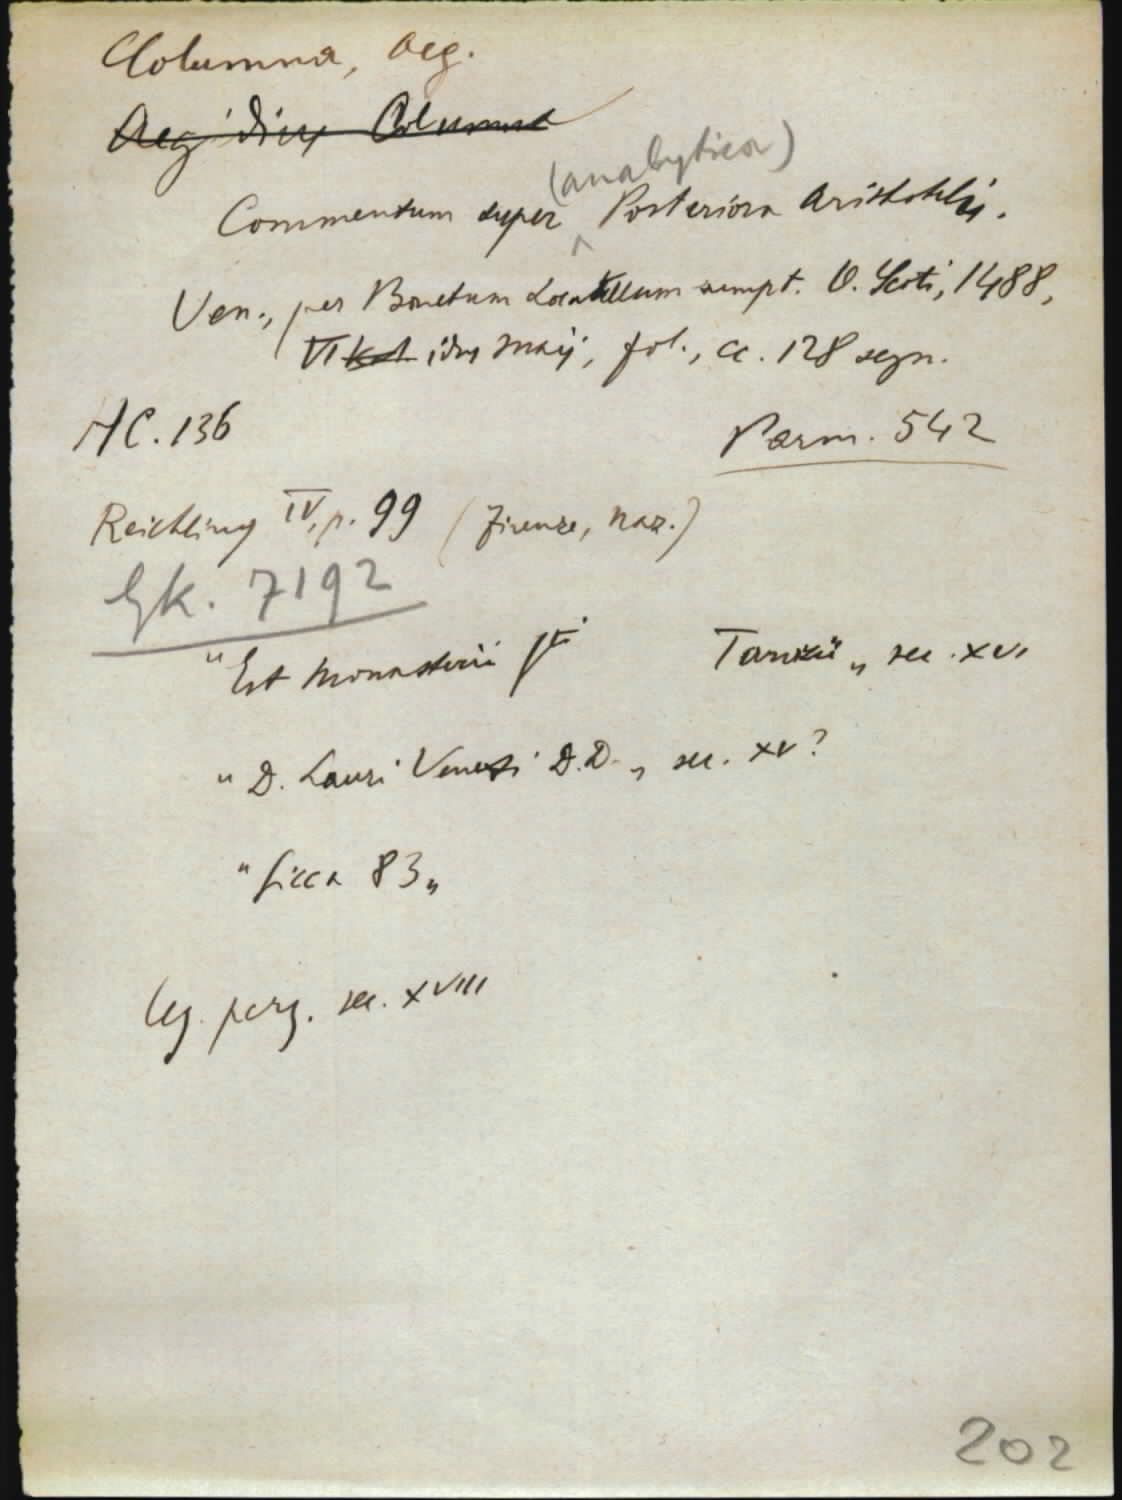 Columna, Aeg.
Aegidius Columna
(analytica)
Commentum super Posteriora Aristotelis.
Ven., per Bonetum Locatellum sumpt. O. Scoti, 1488,
VI Kal idus Maij, fol., cc. 128 segn.
HC. 136
Parm. 542
Reichling IV, p. 99 (Firenze, Naz.)
Gk. 7192
"Est Monasterii Sti Tarvisii„ sec. XVI
"D. Lauri Veneti D.D.„ sec. XV?
"Sicca 83„
Leg. perg. sec. XVIII
202